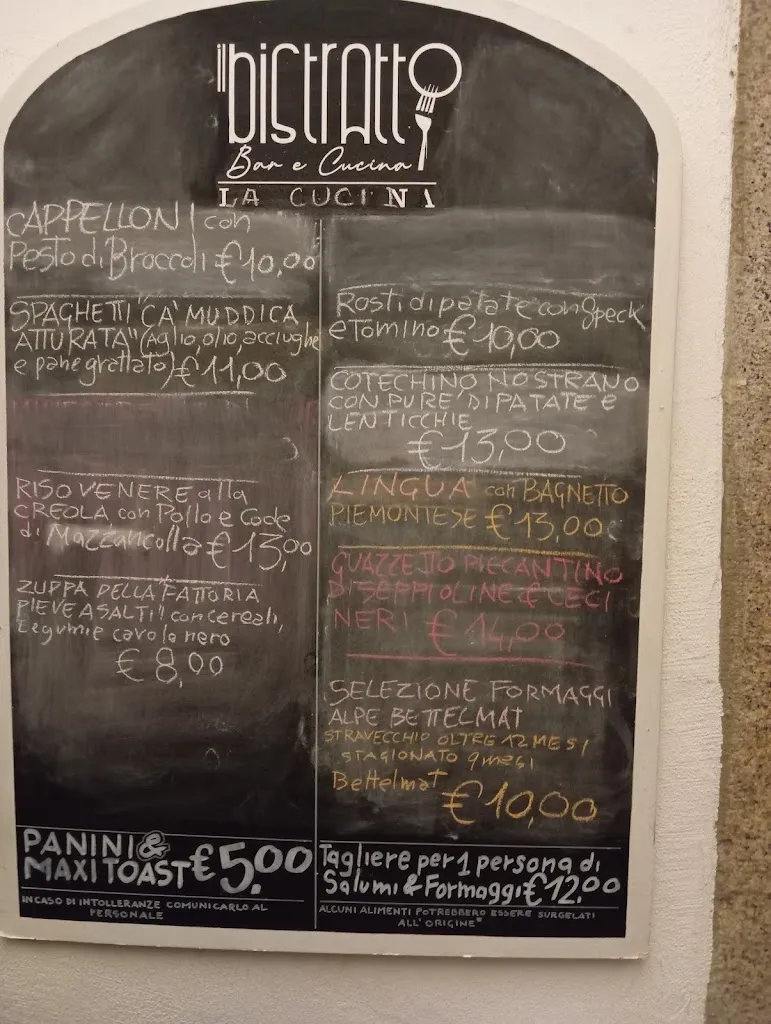 il bistrattò
Bar e Cucina
LA CUCINA
CAPPELLONI con
Pesto di Broccoli €10,00
SPAGHETTI "CA' MUDDICA
ATTURATA" (Aglio, olio, acciughe
e pane grattato) €11,00
RISO VENERE alla
CREOLA con Pollo e Code
di Mazzancolla €13,00
ZUPPA DELLA "FATTORIA
PIEVE A SALTI" con cereali,
Legumi e cavolo nero
€ 8,00
PANINI &
MAXI TOAST €5.00
IN CASO DI INTOLLERANZE COMUNICARLO AL
PERSONALE
Rosti di patate con Speck
e Tomino €10,00
COTECHINO NOSTRANO
CON PURE' DI PATATE e
LENTICCHIE
€13,00
LINGUA con BAGNETTO
PIEMONTESE €13,00
GUAZZETTO PICCANTINO
DI SEPPIOLINE e CECI
NERI € 14,00
SELEZIONE FORMAGGI
ALPE BETTELMAT
STRAVECCHIO OLTRE 12 MESI
STAGIONATO 9 mesi
Bettelmat
€10,00
Tagliere per 1 persona di
Salumi & Formaggi €12.00
ALCUNI ALIMENTI POTREBBERO ESSERE SURGELATI
ALL'ORIGINE*